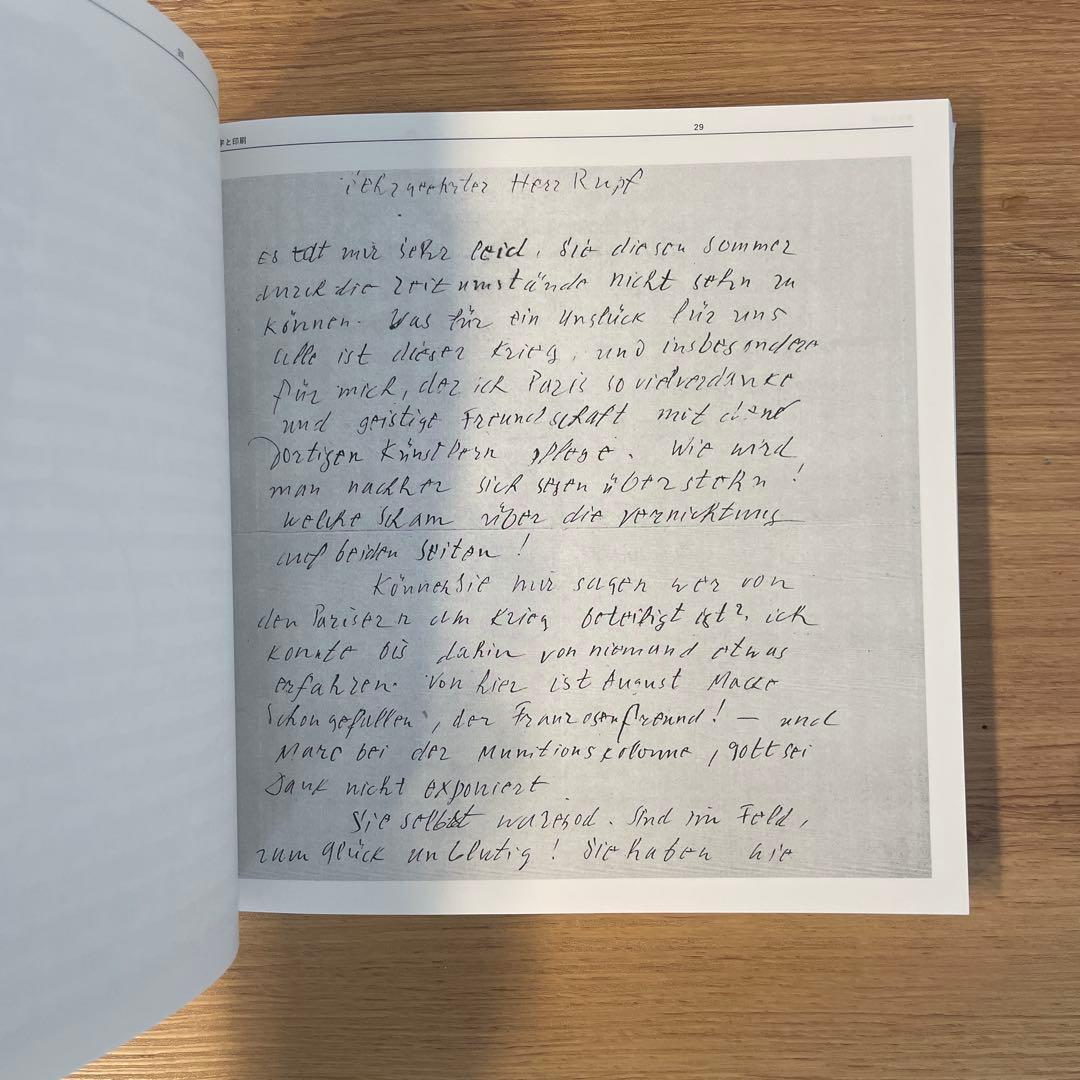 字と印刷
29
sehrgeehrter Herr Rupf
es tat mir sehr leid, Sie diesen Sommer
durch die Zeitumstände nicht sehn zu
können. Was für ein Unglück für uns
alle ist dieser Krieg, und insbesondere
für mich, der ich Paris so vielverdanke
und geistige Freundschaft mit
dortigen Künstlern pflege. Wie wird
man nachher sich gegenüberstehn!
welche Scham über die Vernichtung
auf beiden Seiten!
Können Sie mir sagen wer von
den Parisern am Krieg beteiligt ist?, ich
konnte bis dahin von niemand etwas
erfahren. Von hier ist August Macke
schon gefallen, der Franzosenfreund! — und
Marc bei der Munitionskolonne, gottsei
Dank nicht exponiert
Sie selbst waren od. sind im Feld,
zum Glück unblutig! Sie haben wie